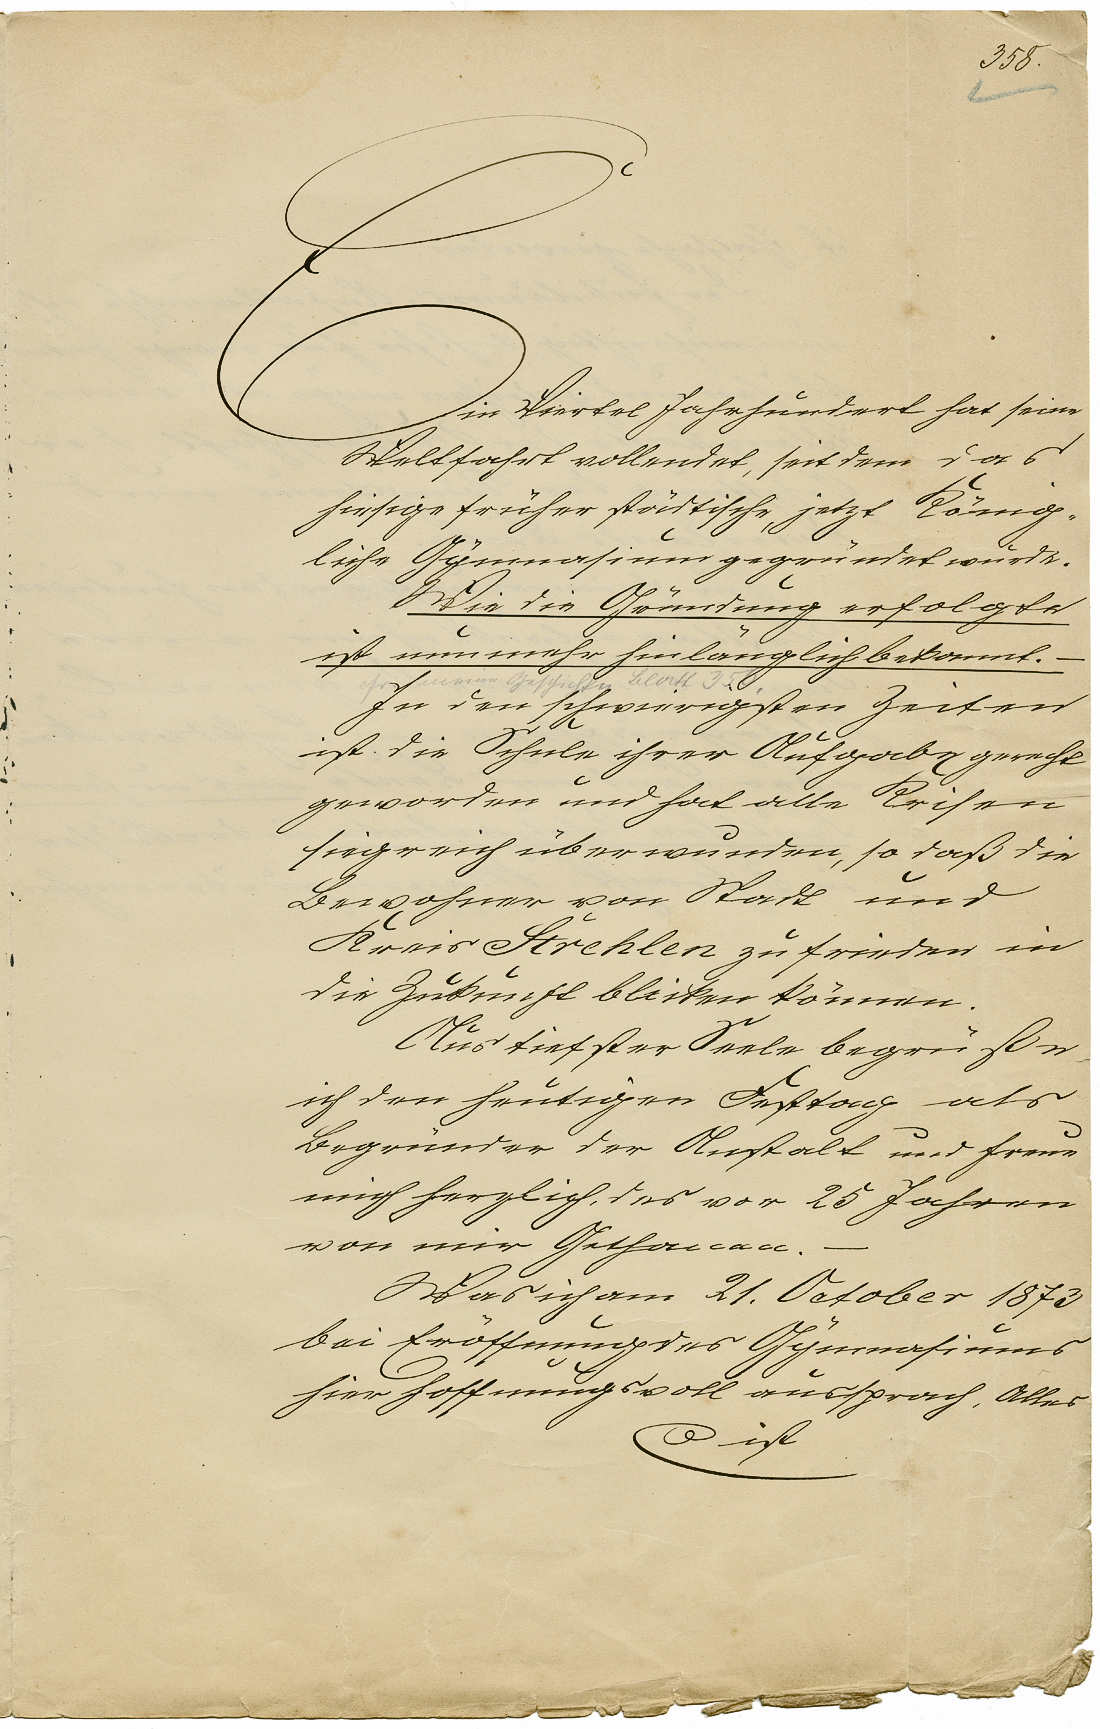 358.
Ein Viertel Jahrhundert hat seine
Weltfahrt vollendet, seitdem das
hiesige früher städtische, jetzt König-
liche Gÿmnasium gegründet wurde.
Wie die Gründung erfolgte
ist nunmehr hinlänglich bekannt. —
meine Geschichte Blatt 35
In den schwierigsten Zeiten
ist die Schule ihrer Aufgabe gerecht
geworden und hat alle Krisen
siegreich überwunden, so daß die
Bewohner von Stadt und
Kreis Strehlen zufrieden in
die Zukunft blicken können.
Aus tiefster Seele begrüße
ich den heutigen Festtag als
Begründer der Anstalt und freue
mich herzlich, des vor 25 Jahren
von mir Gethanen. —
Was ich am 21. October 1873
bei Eröffnung des Gÿmnasiums
hier hoffnungsvoll aussprach, Alles
ist